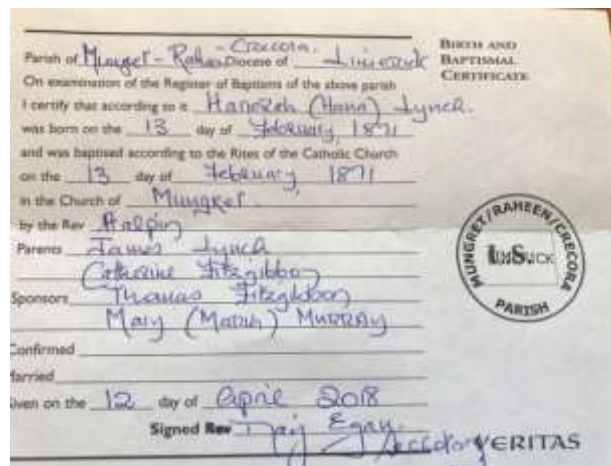 Parish of Mungret - Raheen Crecora. Diocese of Limerick
BIRTH AND
BAPTISMAL
CERTIFICATE
On examination of the Register of Baptisms of the above parish
I certify that according to it Hanorah (Hana) Lynch.
was born on the 13 day of February 1871
and was baptised according to the Rites of the Catholic Church
on the 13 day of February 1871
in the Church of Mungret.
by the Rev Halpin
Parents James Lynch
Catherine Fitzgibbon
Sponsors Thomas Fitzgibbon
Mary (Maria) MURRAY
Confirmed
Married
Given on the 12 day of April 2018
Signed Rev Egan.
Secretary
VERITAS
MUNGRET/RAHEEN/CRECORA
PARISH